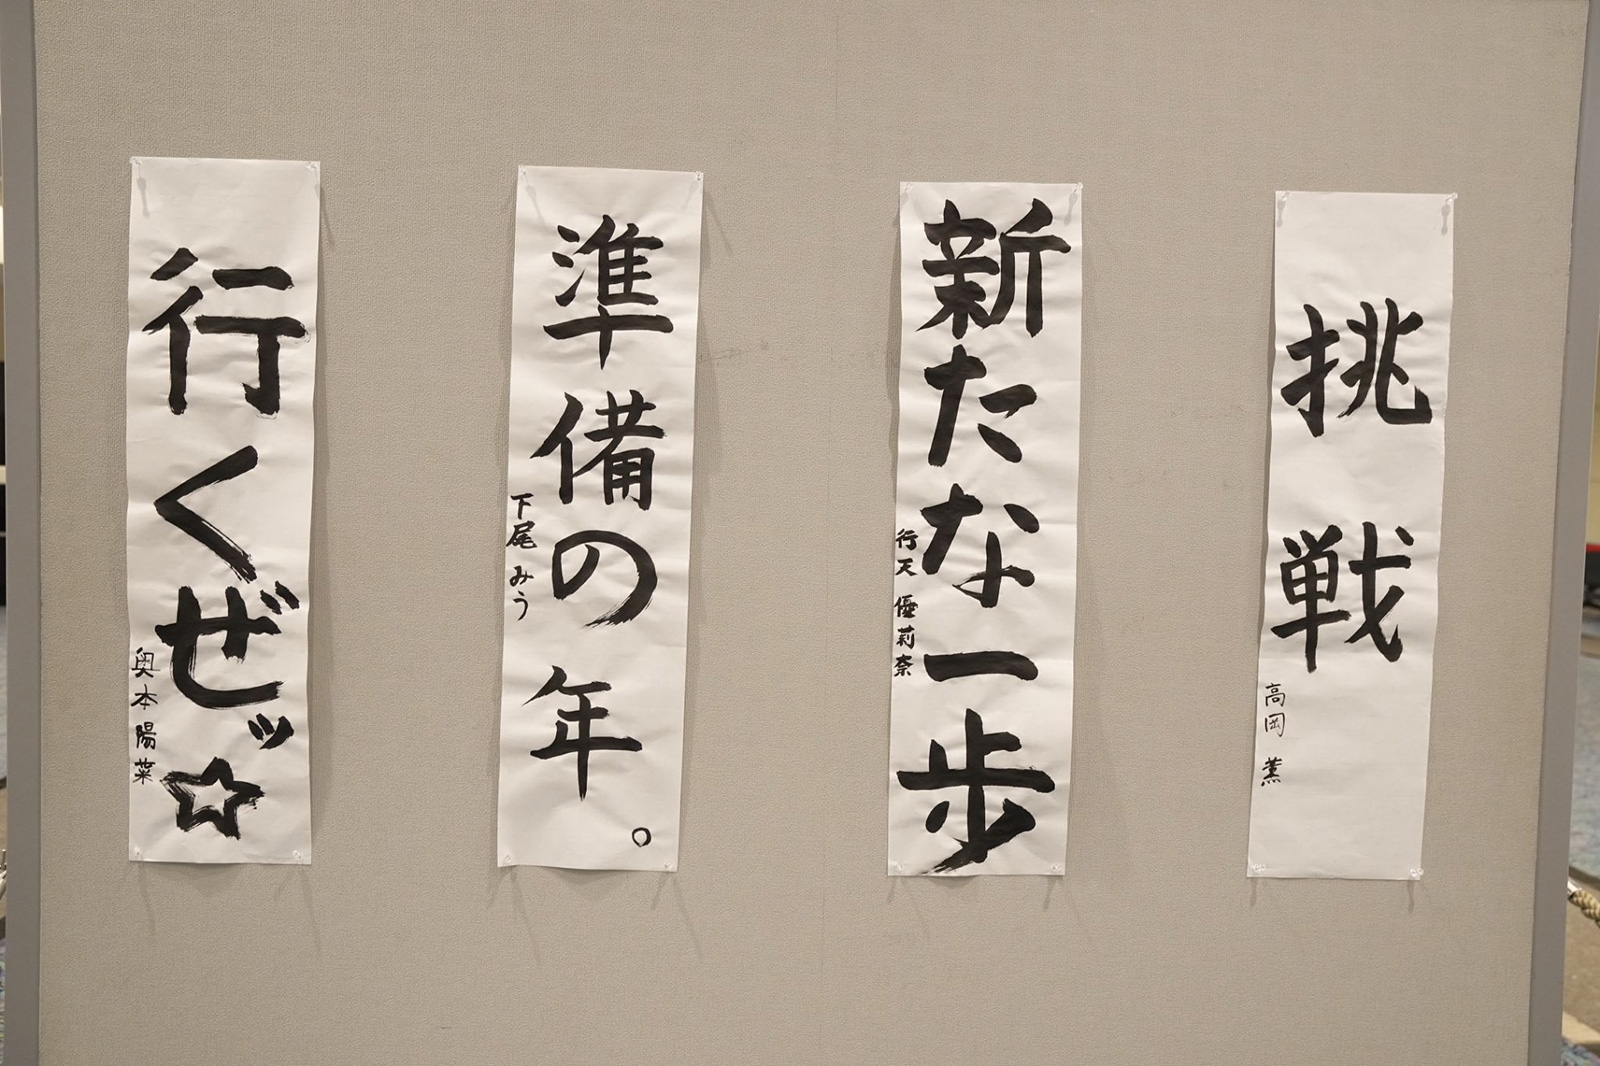 挑戦
高岡 薫
新たな一歩
行天 優莉奈
準備の年。
下尾 みう
行くぜッ☆
奥本陽菜